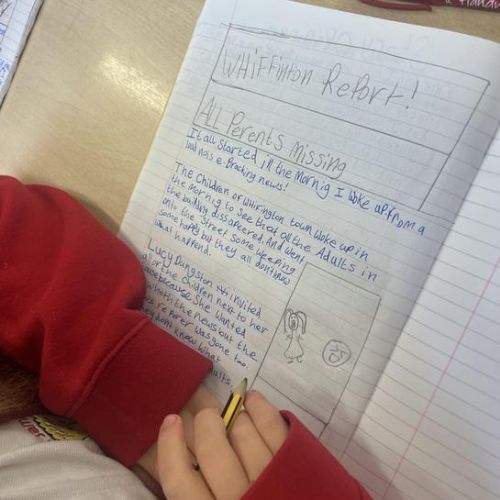 WHiFFinton RePort!
ALL Parents Missing
It all Started in the Mornig I Woke up From a
loud nois e. Bracking news!
The Children of Whiringtown town Woke up in
the Mornig to See that all the Adults in
the building dissapeered. And Went
onto the Street Some weeping
Some happy but they all don't know
What happend.
Lucy Dungston invited
all of the Children next to her
because She Wanted
the News but the
reporter Was gone too.
dont know What
Adults.